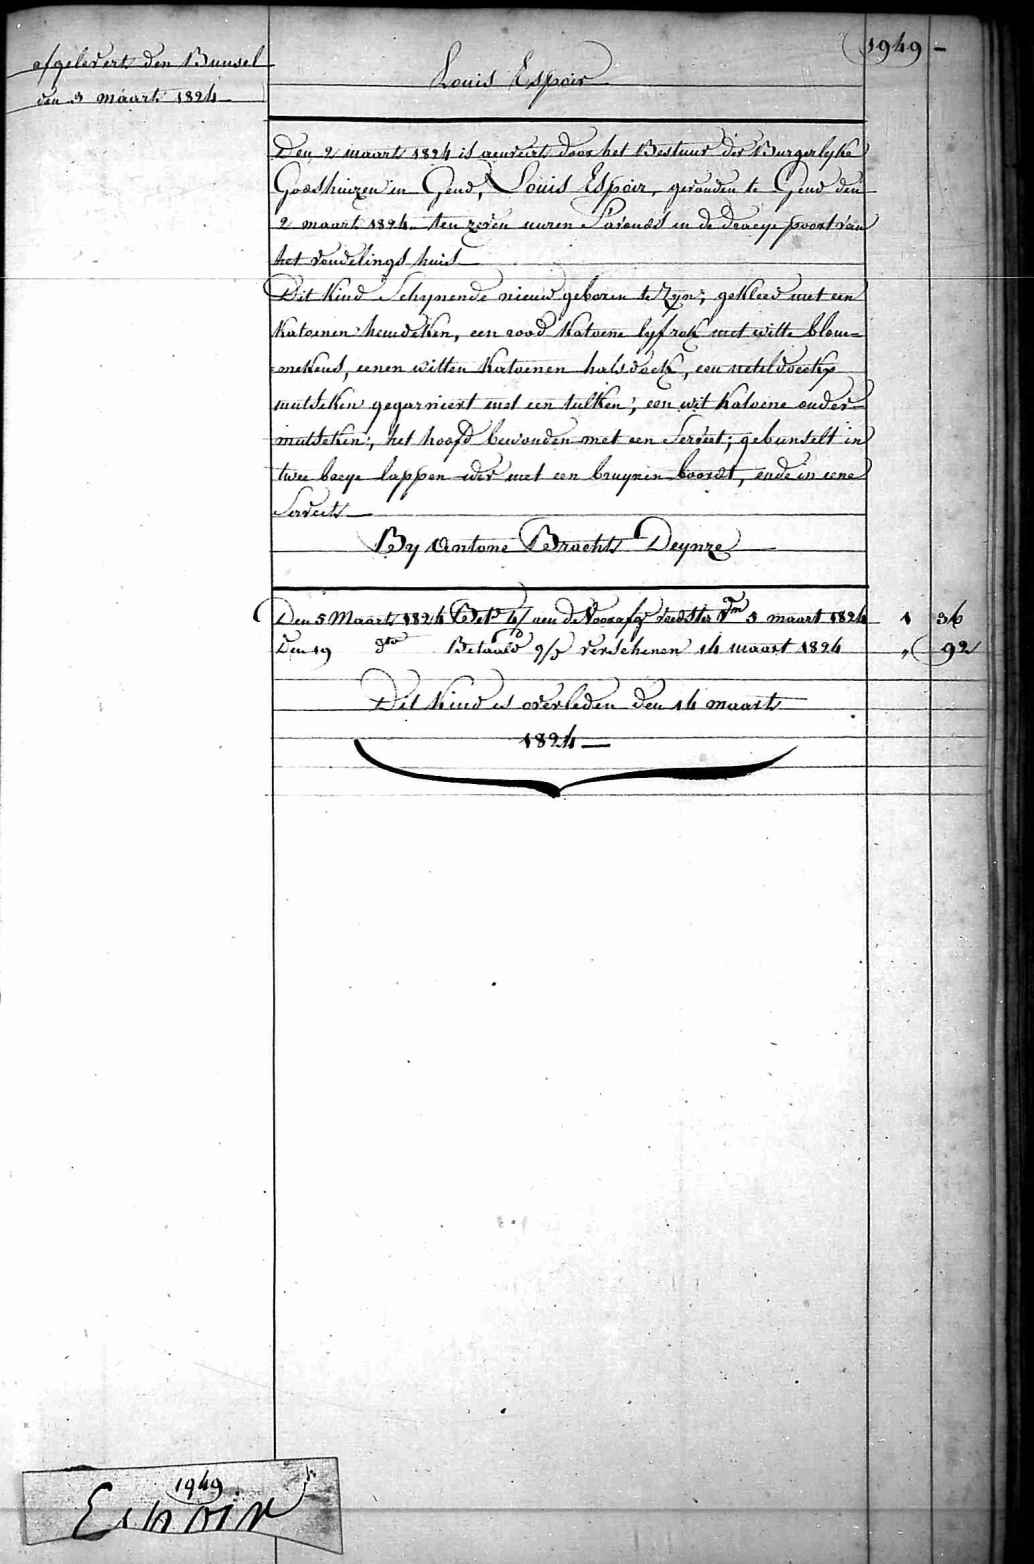 1949 -
afgelevert den Bunsel
den 3 maart 1824
Louis Espoir
Den 2 maart 1824 is aenveirt door het Bestuur der Burgerlyke
Godshuizen in Gend, Louis Espoir, gevonden te Gend den
2 maart 1824 ten zeven uuren S'avonds in de draeye poort van
het vondelings huis
Dit Kind Schynende nieuw geboren te Zyn; gekleed met een
Katoenen hemdeken, een rood Katoene lyfrok met witte blom=
mekens, eenen witten Katoenen halsdoek, een neteldoecke
mutseken gegarniert met een tulken; een wit Katoene onder=
mutseken; het hoofd bewonden met een Serviet; gebunselt in
twee baeye lappen wit met een bruynen boordt, ende in eene
Serviets
By Antone Brachts Deynze
Den 5 Maart 1824 aen de Voorafg voedster 3 maart 1824 1 36
Den 19 dto Betaald verschenen 14 maart 1824 " 92
Dit Kind is overleden den 14 maart
1824
1949
Espoir